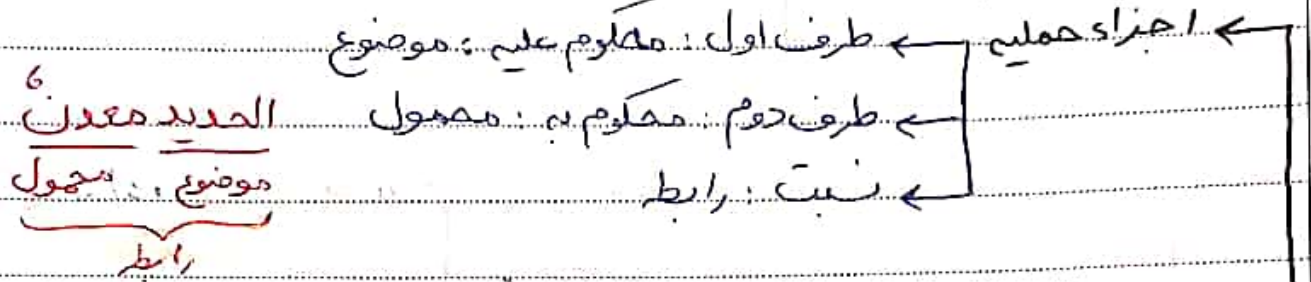 اجزاء حملیه ← طرف اول : محکوم علیه : موضوع
← طرف دوم : محکوم به : محمول
← نسبت : رابط
الحدید معدنٌ
موضوع محمول
رابط